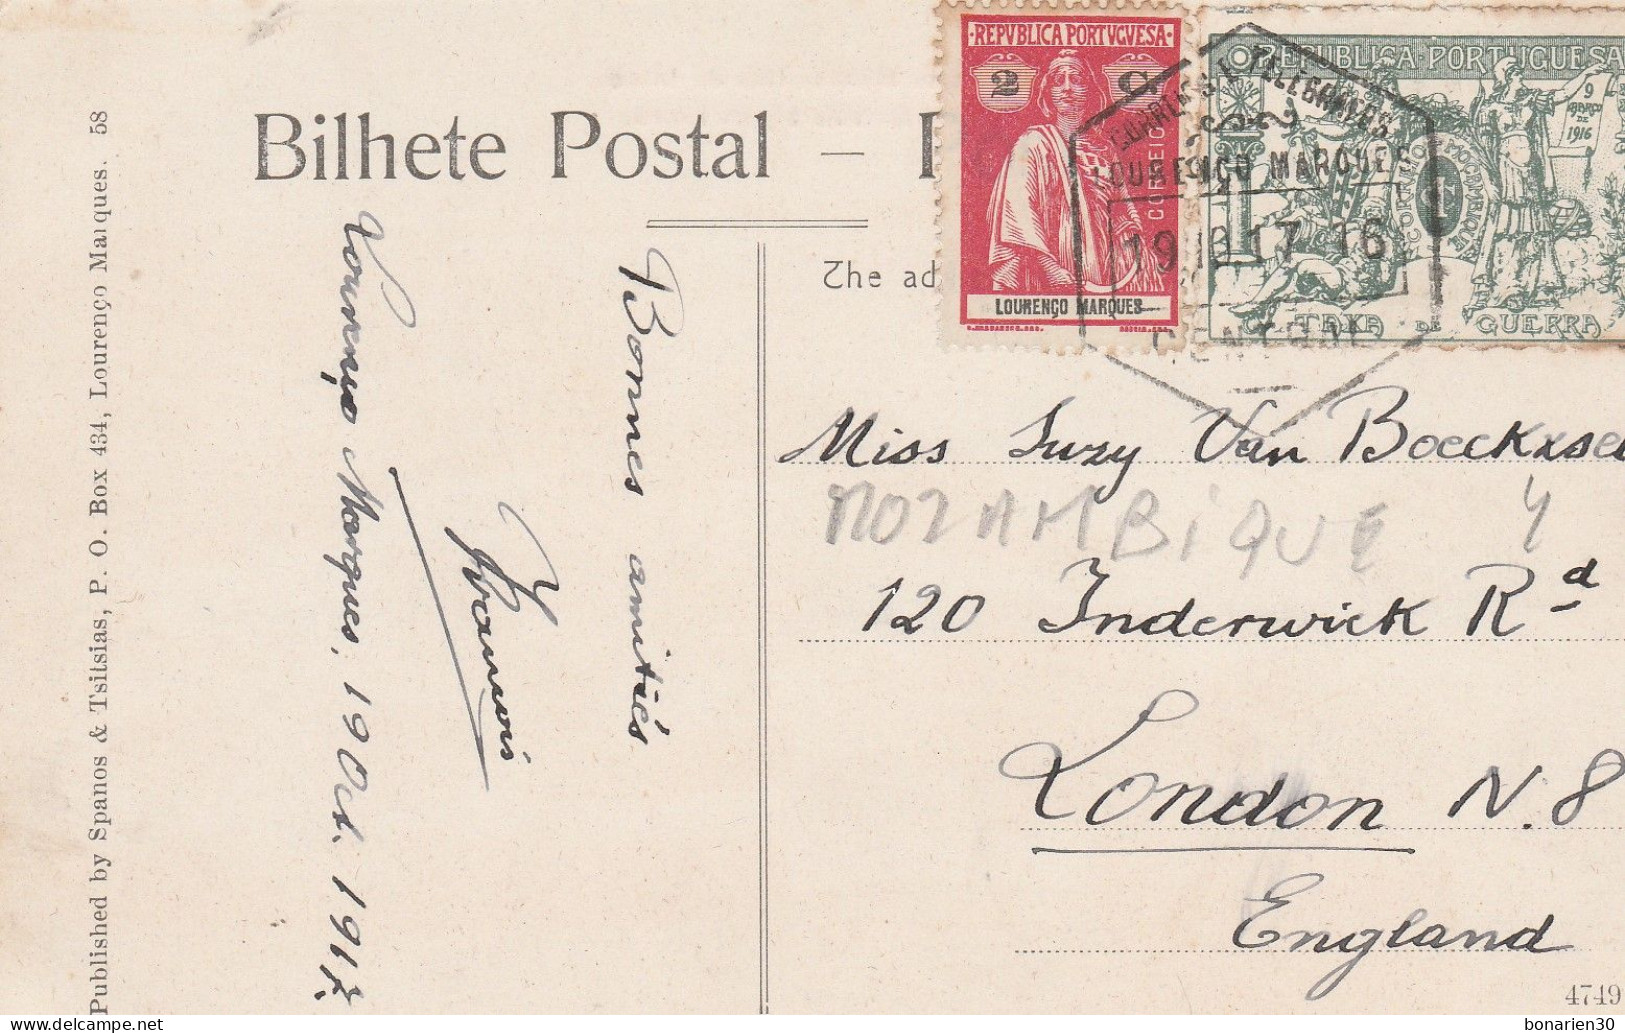 Bilhete Postal –
The ad
REPVBLICA PORTVGVESA
2 C.
CORREIO
LOURENÇO MARQUES
REPUBLICA PORTUGUESA
9
MARÇO
DE
1916
CORREIO MOÇAMBIQUE
TAXA DE GUERRA
CORREIOS E TELEGRAFOS
LOURENÇO MARQUES
19 10 17 16
CENTRAL
Published by Spanos & Tsitsias, P. O. Box 434, Lourenço Marques. 58
Lourenço Marques, 19 Oct. 1917.
Bonnes amitiés
Miss Suzy Van Boeckxsel
MOZAMBIQUE 4
120 Inderwick Rd
London N. 8
England
4749
bonarien30